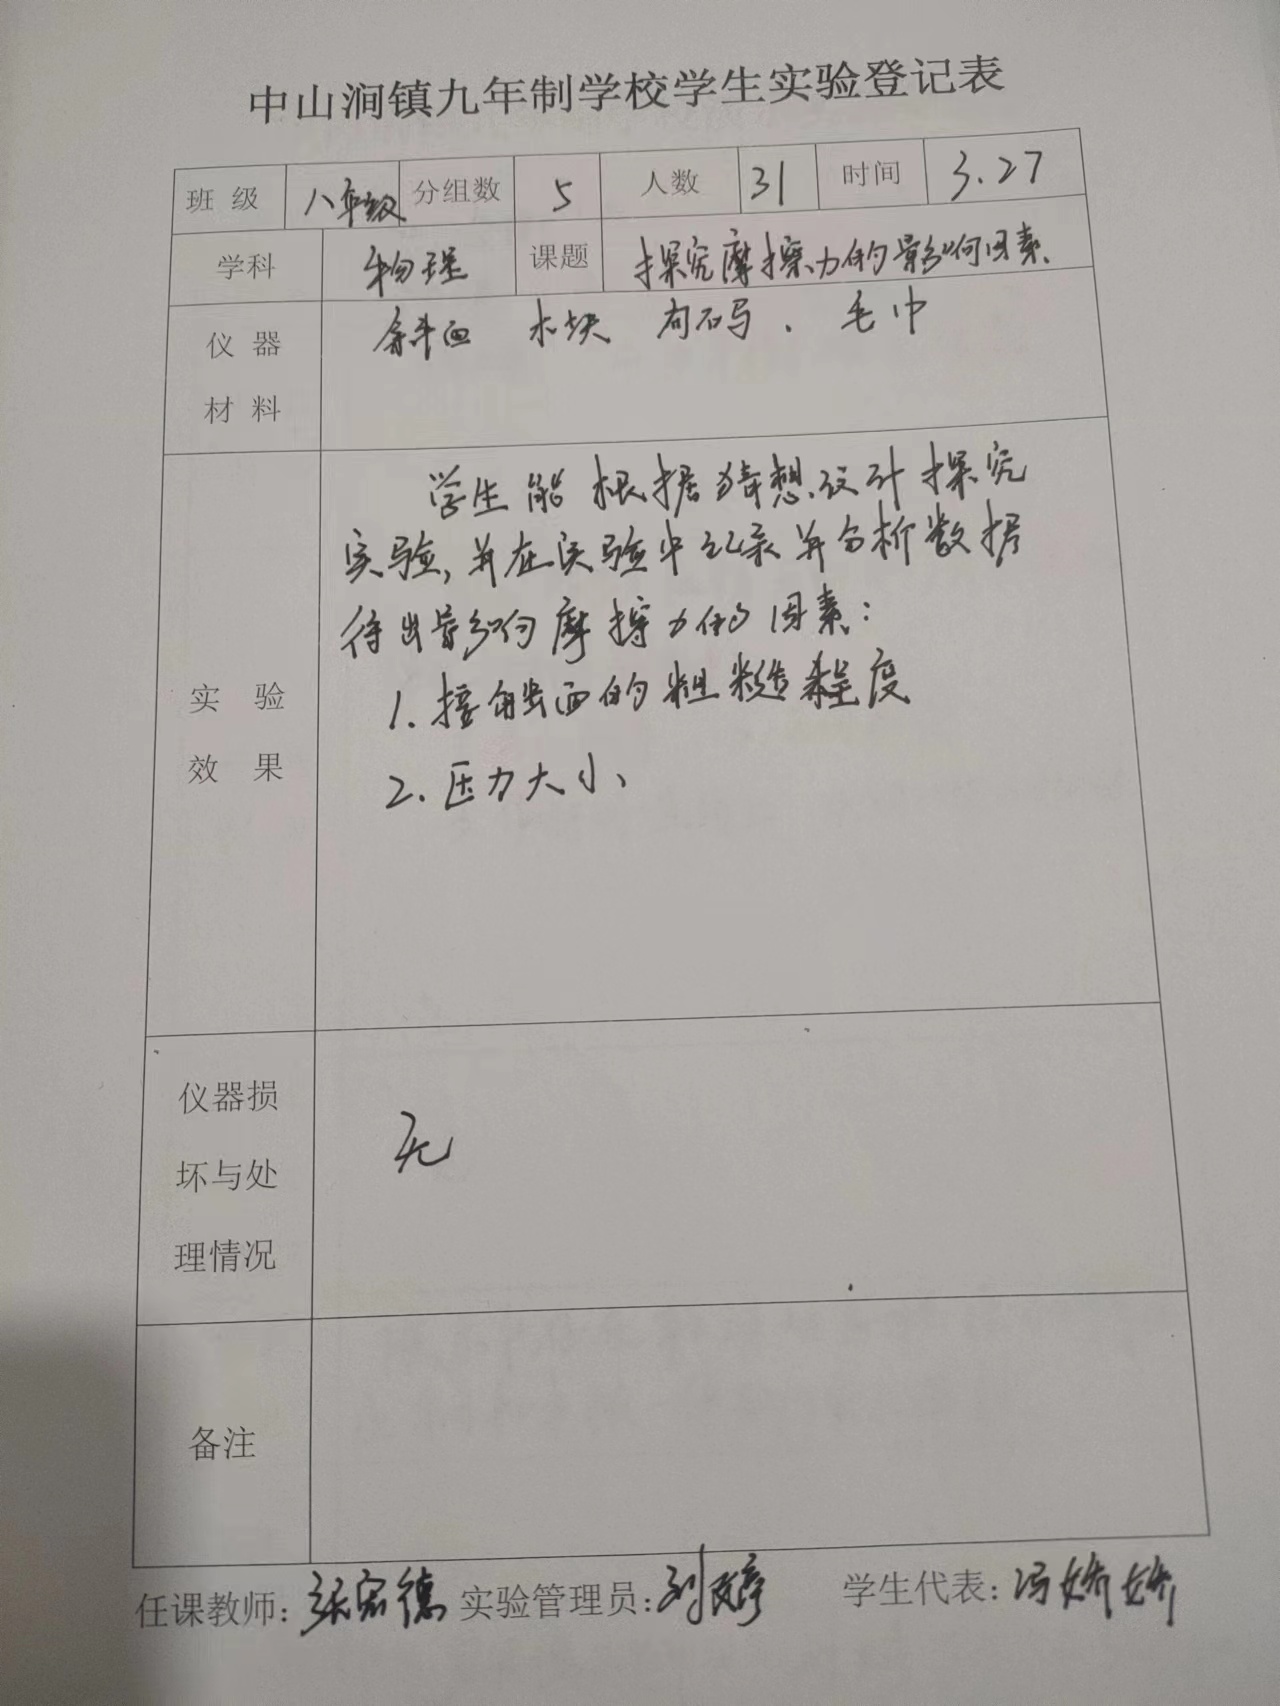 中山涧镇九年制学校学生实验登记表
班 级 八年级 分组数 5 人数 31 时间 3.27
学科 物理 课题 探究摩擦力的影响因素
仪 器
材 料
斜面 木块 勾码、毛巾
实 验
效 果
学生能根据猜想设计探究
实验,并在实验中记录并分析数据
得出影响摩擦力的因素:
1.接触面的粗糙程度
2.压力大小、
仪器损
坏与处
理情况
无
备注
任课教师: 张宏德 实验管理员: 刘婷 学生代表: 冯娇娇